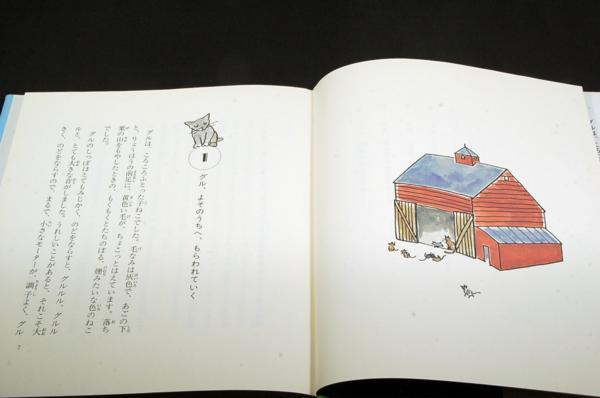 1
グル、よそのうちへ、もらわれていく
グルは、ころころふとった子ねこでした。毛なみは灰色で、あごの下
と、りょうほうの前足に、黄色い毛が、ちょこっとはえています。落ち
葉の山をもやしたときの、もくもくとたちのぼる、煙みたいな色のねこ
でした。
グルのしっぽはとてもみじかく、のどをならすと、グルルル、グルル
ルと、とても大きな音がしました。うれしいことがあると、それこそ大
きく、のどをならすので、まるで、小さなモーターが、調子よく、グル
7